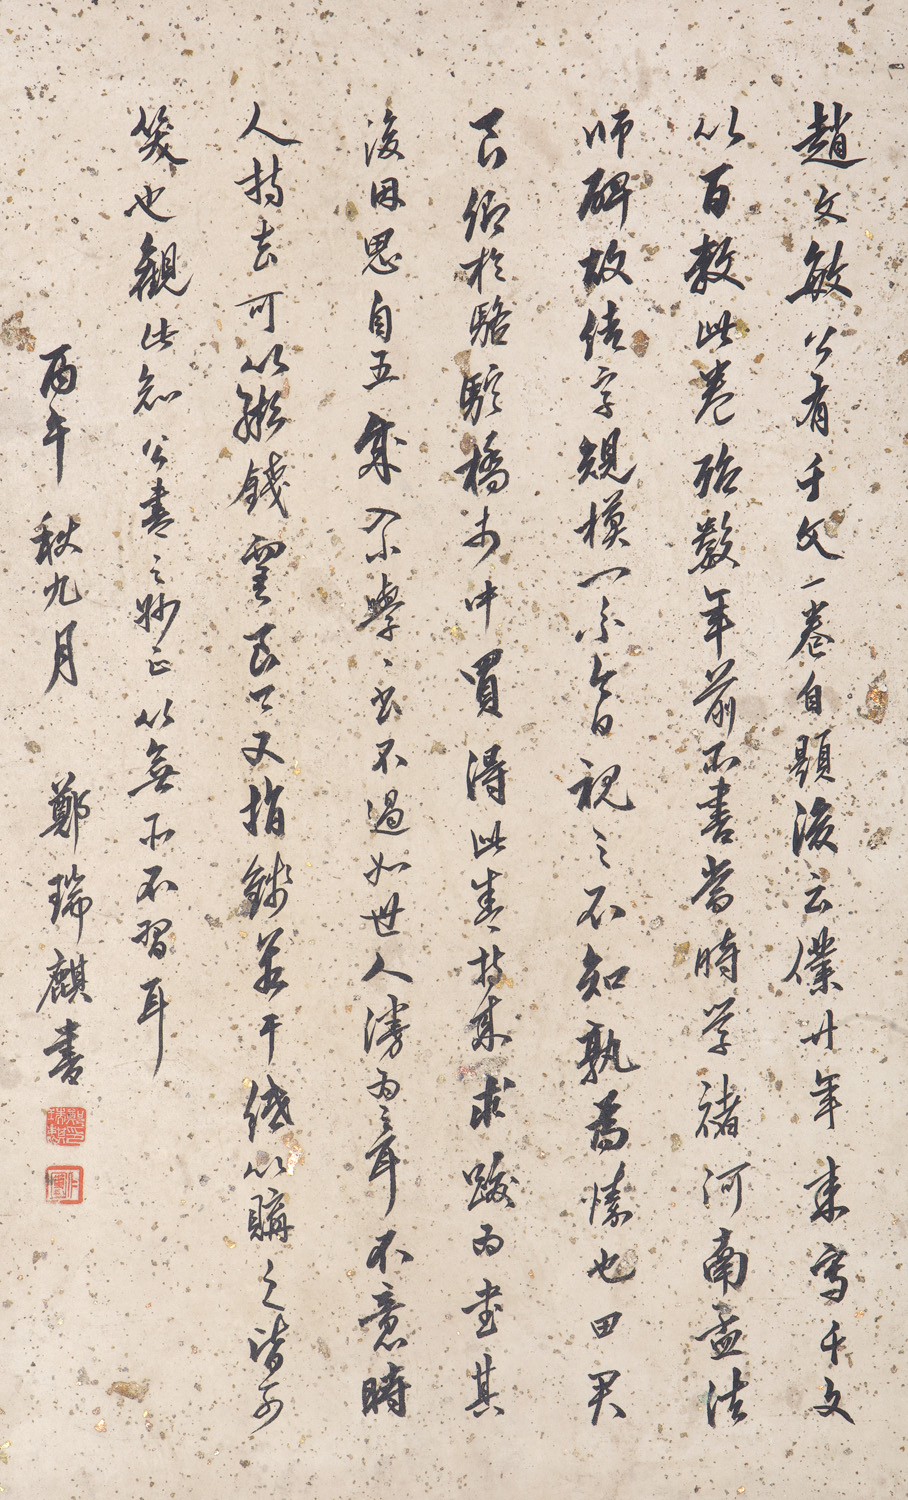 趙文敏公有千文一卷自題後云僕廿年來寫千文
以百數此卷殆數年前所書當時學褚河南孟法
師碑故結字規模一尔今日視之不知孰為愫也田君
良卿於駱駝橋市中買得此卷持來求跋為書其
後因思自五歲入小學〻書不過如世人漫為之耳不意時
人持去可以粥錢而吾良卿又捐錢若干緡以購之皆可
笑也觀此知公書之妙正以無所不習耳
丙午秋九月 鄭瑞麒書